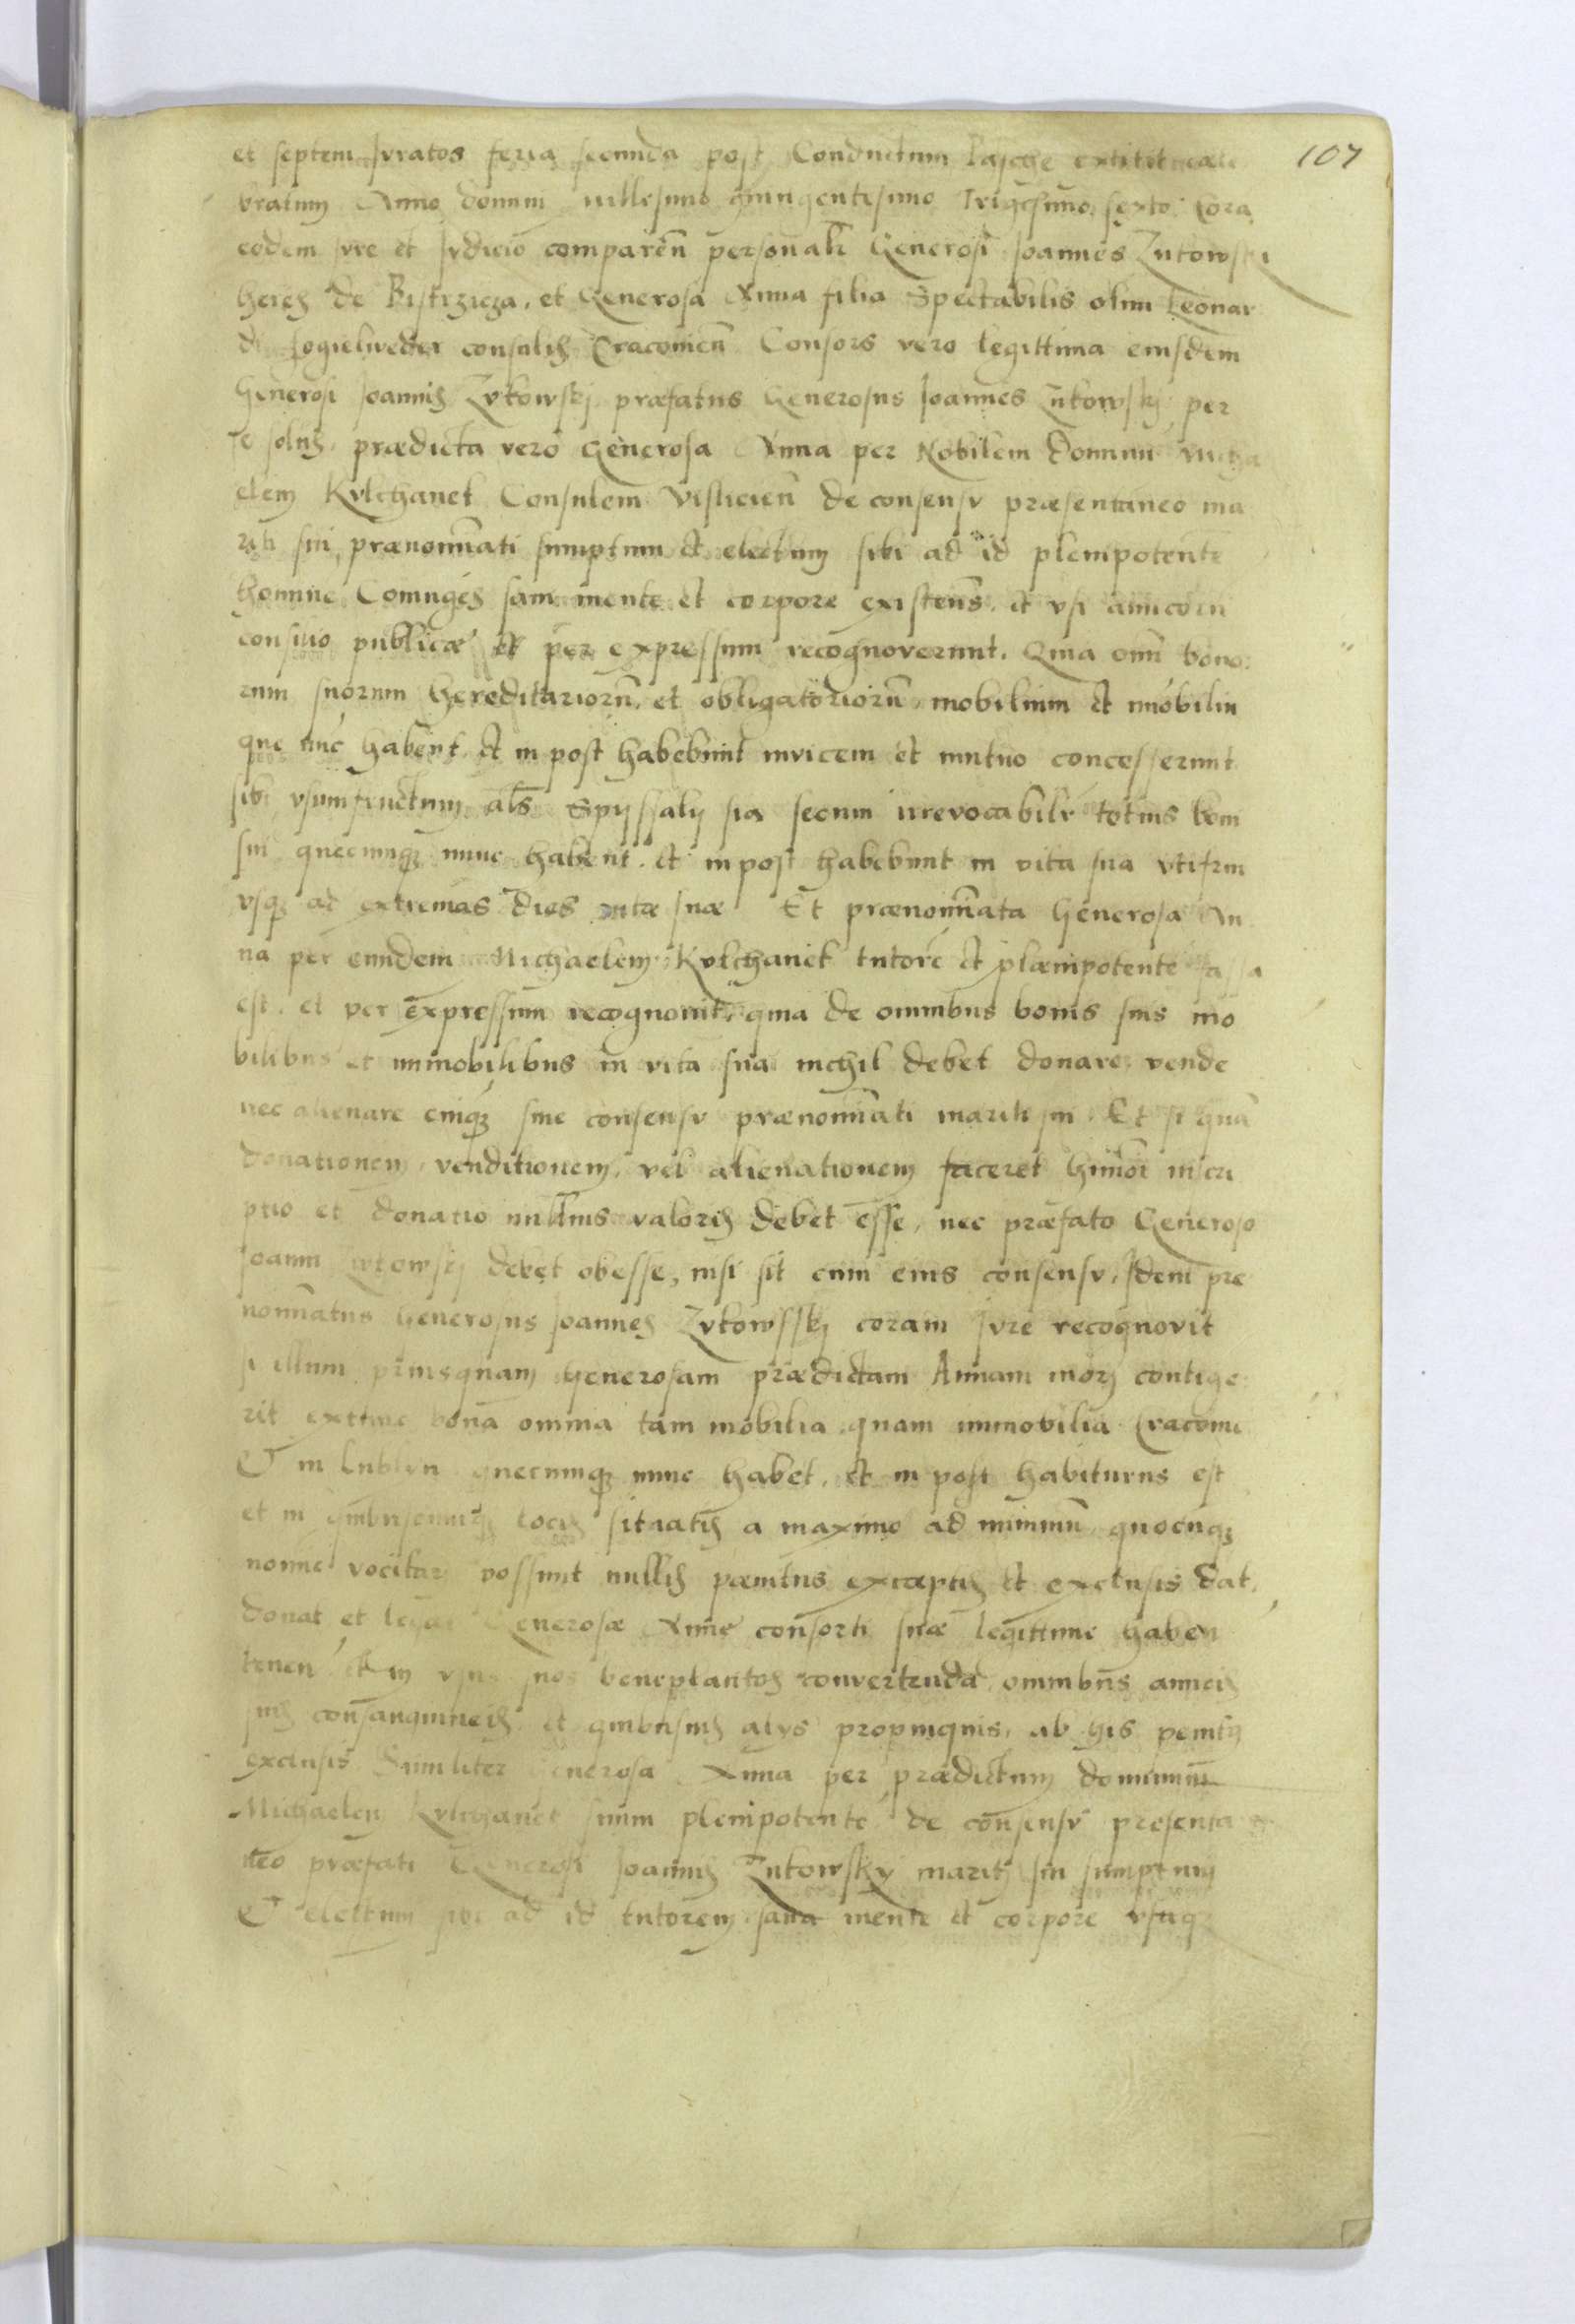 107
et septem Jvratos feria secunda post Conductum Pasche extitit cæle
bratum Anno domini millesimo quingentesimo Trigesimo sexto Cora
eodem jvre et Jvdicio comparen̄ personalr̄ Generosi Joannes Zukowski
heres de Bistrzicza, et Generosa Anna filia Spectabilis olim Leonar
di consulis Cracouien̄ Consors vero legittima eiusdem
Generosi Joannis Zvkowskj præfatus Generosus Joannes Zukowskj per
se solus, prædicta vero Generosa Anna per Nobilem dominū Micha
elem Kvlchanek Consulem Vislicien̄ de consensv præsentaneo ma
riti sui prænom̄nati sumptum et electum sibi ad id plenipotentē
homine Coniuges sani mente et corpore existen̄s, et vsi amicorū
consilio publicæ et per expressum recognoverunt. Quia om̄i bono:
rum suorum hereditariorū, et obligatoriorū, mobilium et im̄obiliū
que nūc habent et in post habebunt invicem et mutuo concesserunt
sibi vsumfructum al̄s Spyssaly sia secum irrevocabilr̄ totius boni
sui quecunqꝫ nunc habent. et inpost habebunt in vita sua vtifrui
vsqꝫ ad extremas dies vitæ suæ Et prænom̄nata Generosa An
na per eundem Michaelem Kvlchanek tutorē et plænipotentē fassa
est. et per expressum recognouit, quia de omnibus bonis suis mo
bilibus et immobilibus in vita sua nichil debet donare vende
nec alienare cuiqꝫ sine consensv prænom̄nati mariti sui. Et si quā
donationem, venditionem, vel alienationem faceret hmōi inscri
ptio et donatio nullius valoris debet esse, nec præfato Generoso
Joanni Zvkowskj debet obesse, nisi sit cum eius consensv, Jdem præ
nom̄natus Generosus Joannes Zvkowsskj coram Jvre recognovit
si illum priusquam Generosam prædictam Annam morj contige
rit extunc bona omnia tam mobilia quam immobilia Cracouie
Et in Lublin quecunqꝫ nunc habet, et in post habiturus est
et in quibuscunqꝫ locis situatis a maximo ad minimū quocūqꝫ
nomine vocitari possunt nullis pænitus excæptis et exclusis dat,
donat et legat Generosæ Anne consorti suæ legittime haben
tenen̄ et in vsus suos beneplacitos convertenda omnibus amicis
suis consanguineis et quibusuis alys propinquis, ab his penitꝰ
exclusis Similiter Generosa Anna per prædictum dominum
Michaelem Kvlchanek suum plenipotentē de consensv presenta
neo præfati Generosi Joannis Zukowsky maritj sui sumptum
Et electum sibi ad id tutorem sana mente et corpore vsaqꝫ